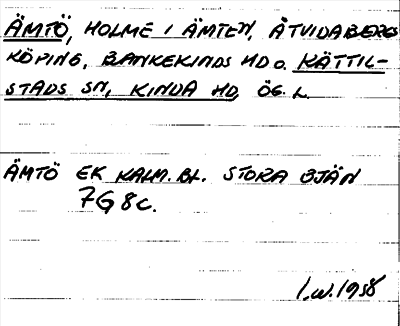 ÄMTÖ, HOLME I ÄMTEN, ÅTVIDABERGS
KÖPING, BANKEKINDS HD O. KÄTTIL-
STADS SN, KINDA HD, ÖG. L.
ÄMTÖ EK KALM. BL. STORA BJÄN
7G8C.
I.W. 1958